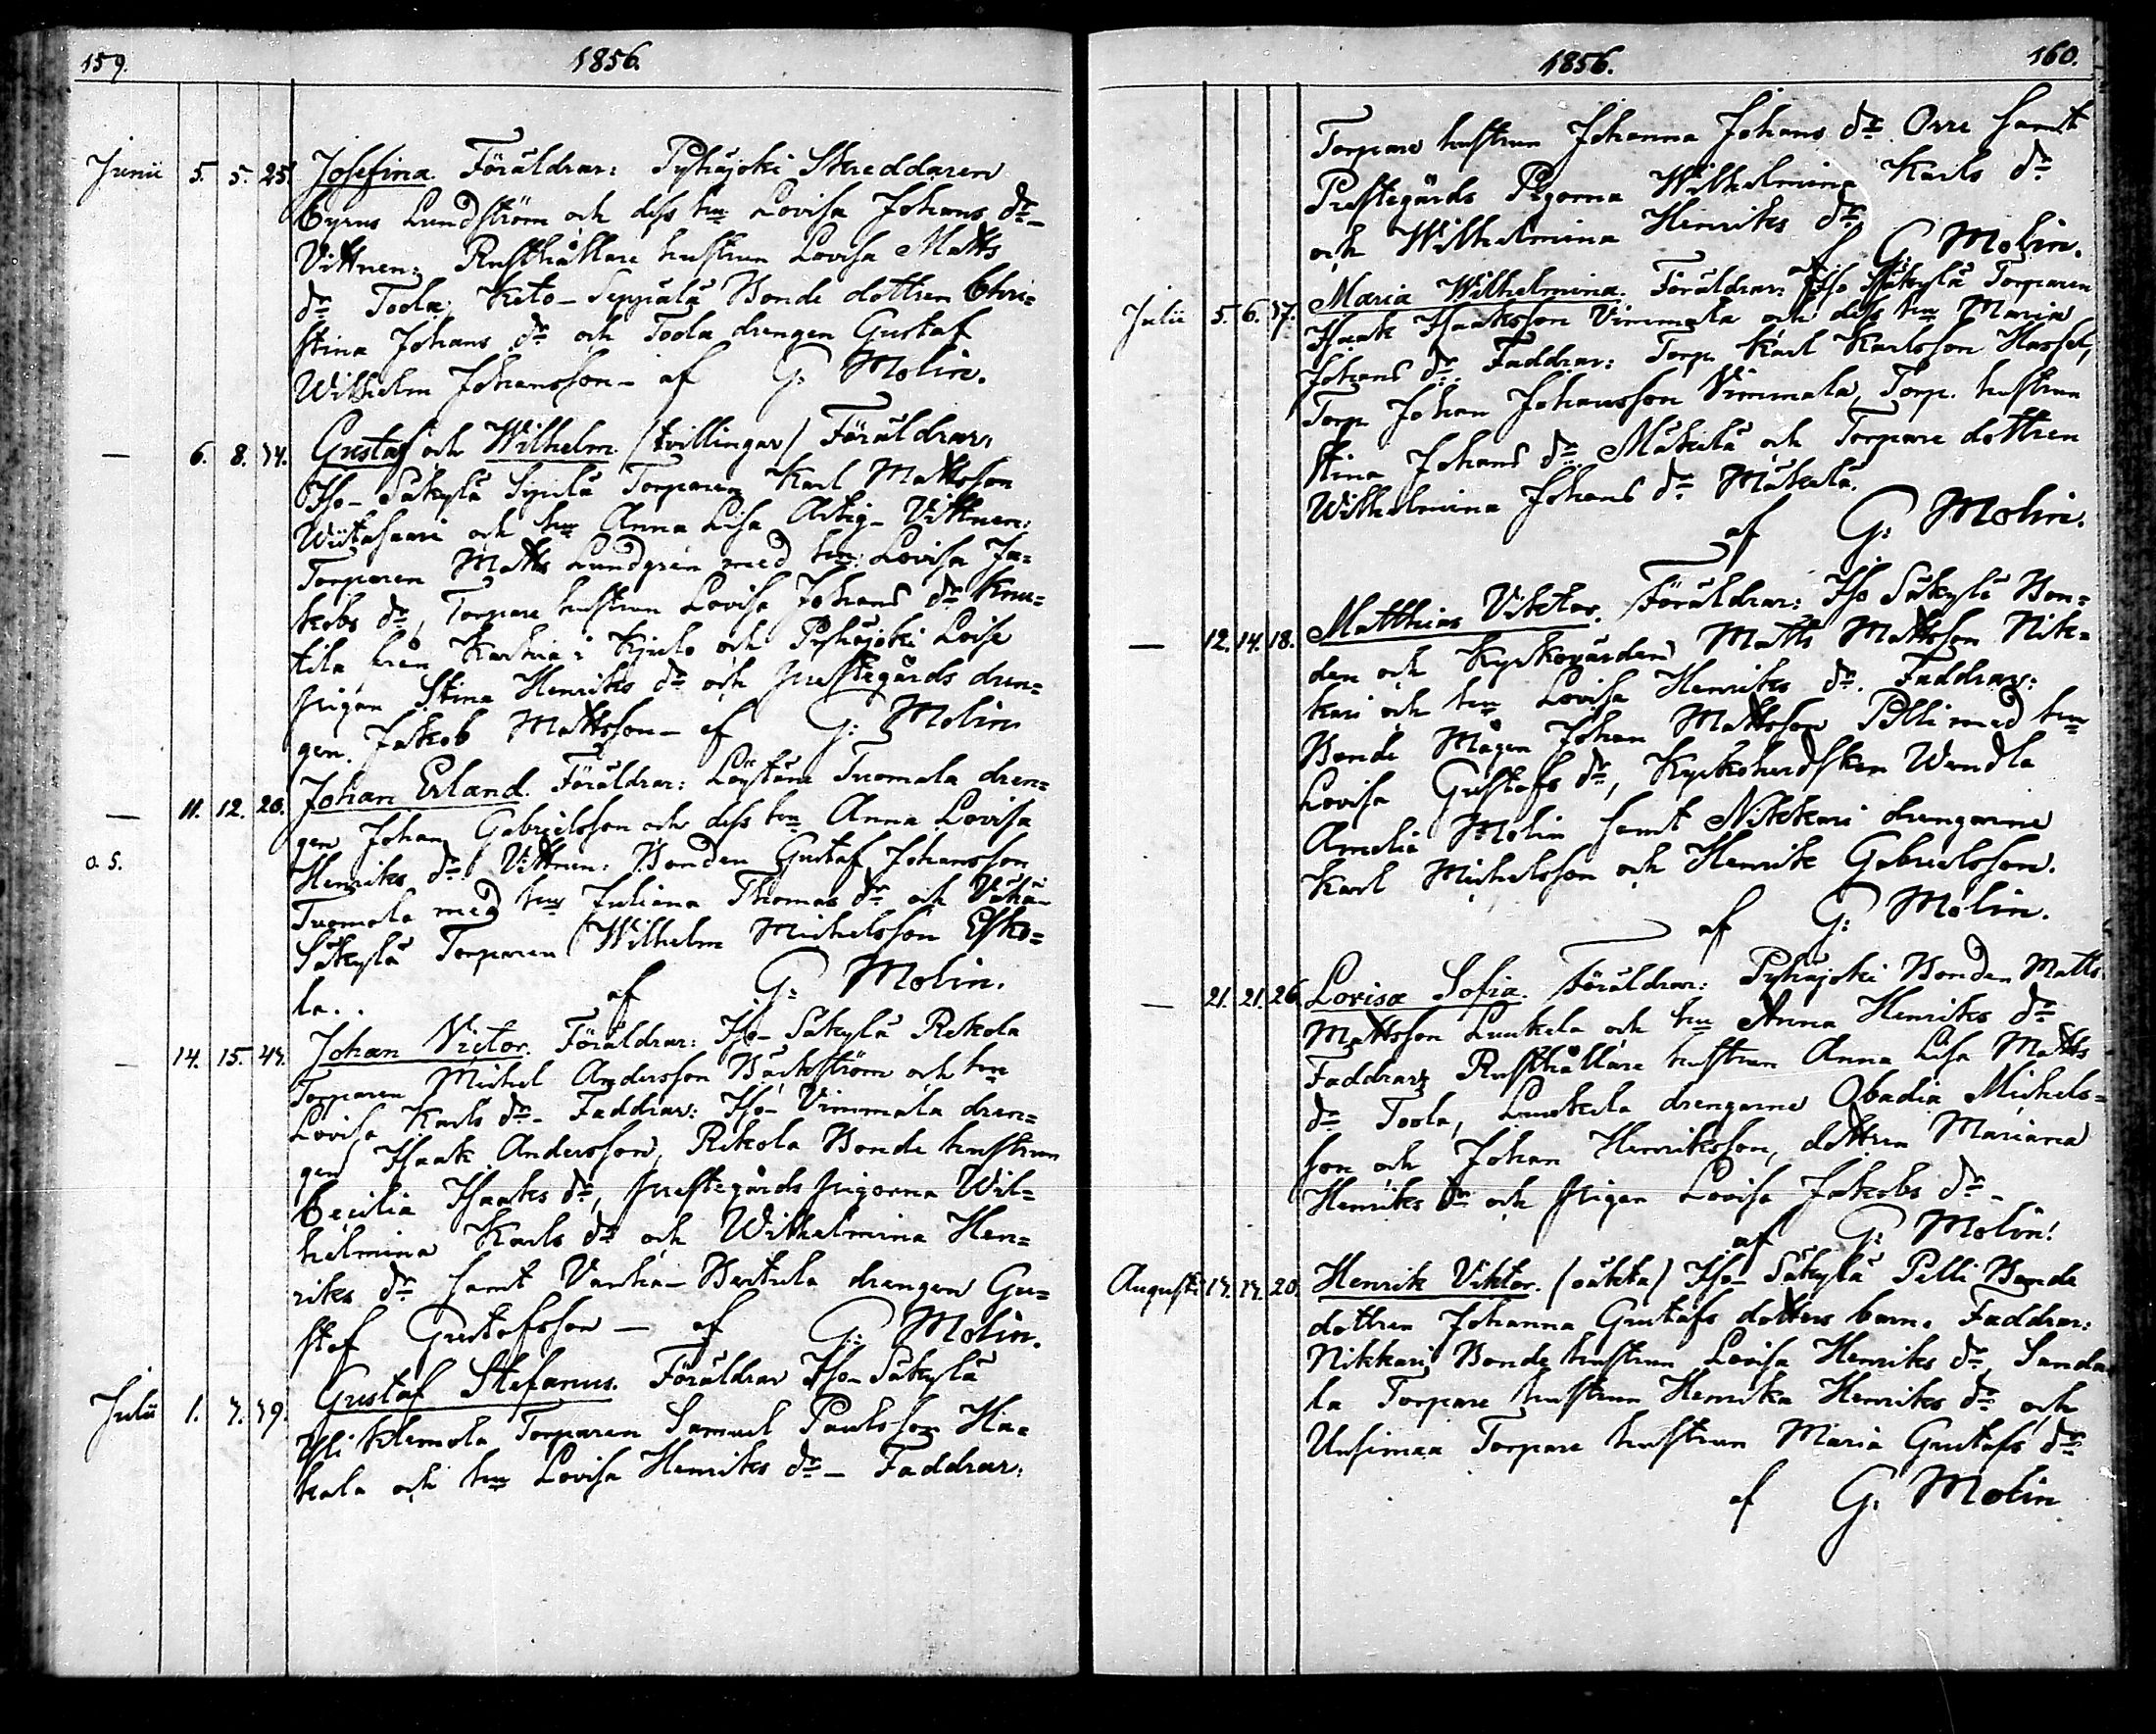 159. 1856.
Junii 5. 5. 25. Josefina. Föräldrar: Pyhäjoki Skreddaren
Cyrus Lundström och dess hu Lovisa Johans dr –
Vittnen: Rusthållare hustrun Lovisa Matts
dr Toola, Keto-Seppälä Bonde dottren Chri=
stina Johans dr och Toola drengen Gustaf
Wilhelm Johansson – af G: Molin.
— 6. 8. 14. Gustaf och Wilhelm (tvillingar) Föräldrar:
Iso-Säkylä Sipilä Torparen Karl Mattsson
Wiitasaari och hu Anna Lisa Artig – Vittnen:
Torparen Matts Lundgren med hu: Lovisa Ja=
kobs dr, Torpare hustrun Lovisa Johans dr Knu=
tila från Karhia i Kjulo och Pyhäjoki Loise
pigan Stina Henriks dr och prestegårds dren=
gen Jakob Mattsson – af G: Molin
— 11. 12. 20. Johan Erland. Föräldrar: Löytäne Tuomala dren=
gen Johan Gabrielsson och dess hu Anna Lovisa
o. s. Henriks dr Vittnen: Bonden Gustaf Johansson
Tuomala med hu Juliana Thomas dr och Vähä-
Säkylä Torparen Wilhelm Michelsson Esko=
la.. af G: Molin.
— 14. 15. 24. Johan Victor. Föräldrar: Iso-Säkylä Rekola
Torparen Michel Andersson Bäckström och hu
Lovisa Karls dr – Faddrar: Iso-Vimmala dren=
gen Isaak Andersson, Rekola Bonde hustrun
Cecilia Isaaks dr, prestegårds pigorna Wil=
helmina Karls dr och Wilhelmina Hen=
riks dr samt Vanha-Bertula drengen Gu=
staf Gustafsson — af G: Molin.
Julii 1. 7. 19. Gustaf Stefanus. Föräldrar Iso-Säkylä
Yli Klemola Torparen Samuel Paulsson Ha=
kala och hu Lovisa Henriks dr – Faddrar:
1856. 160.
Torpare hustrun Johanna Johans dr Orre samt
Prestegårds Pigorna Wilhelmina Karls dr
och Wilhelmina Henriks dr
af G: Molin.
Julii 5. 6. 17. Maria Wilhelmina. Föräldrar: Iso Säkylä Torparen
Isaak Isaaksson Vimmala och dess hu Maria
Johans dr. Faddrar: Torp. Karl Karlsson Hassel,
Torp. Johan Johansson Vimmala, Torp. hustrun
Stina Johans dr Mäkelä och Torpare dottren
Wilhelmina Johans dr Mäkelä.
af G: Molin.
— 12. 14. 18. Matthias Viktor. Föräldrar: Iso Säkylä Bon=
den och Kyrkovärden Matts Mattsson Nik=
kari och hu Lovisa Henriks dr. Faddrar:
Bonde Mågen Johan Mattsson Pelli med hu
Lovisa Gustafs dr, Kyrkoherdskan Wendla
Amelie Molin samt Nikkari drengarne
Karl Michelsson och Henrik Gabrielsson.
af G: Molin.
— 21. 21. 26. Lovisa Sofia. Föräldrar: Pyhäjoki Bonden Matts
Mattsson Luukela och hu Anna Henriks dr
Faddrar: Rusthållare hustrun Anna Lisa Matts
dr Toola, Luukela drengarne Obadia Michels=
son och Johan Henriksson, dottren Mariana
Henriks dr och pigan Lovisa Jakobs dr –
af G: Molin.
Augusti 17. 17. 20. Henrik Viktor. (oäkta) Iso-Säkylä Pelli Bonde
dottren Johanna Gustafs dotters barn. Faddrar:
Nikkari Bonde hustrun Lovisa Henriks dr, Sanda
la Torpare hustrun Henrika Henriks dr och
Unsimaa Torpare hustrun Maria Gustafs dr
af G: Molin